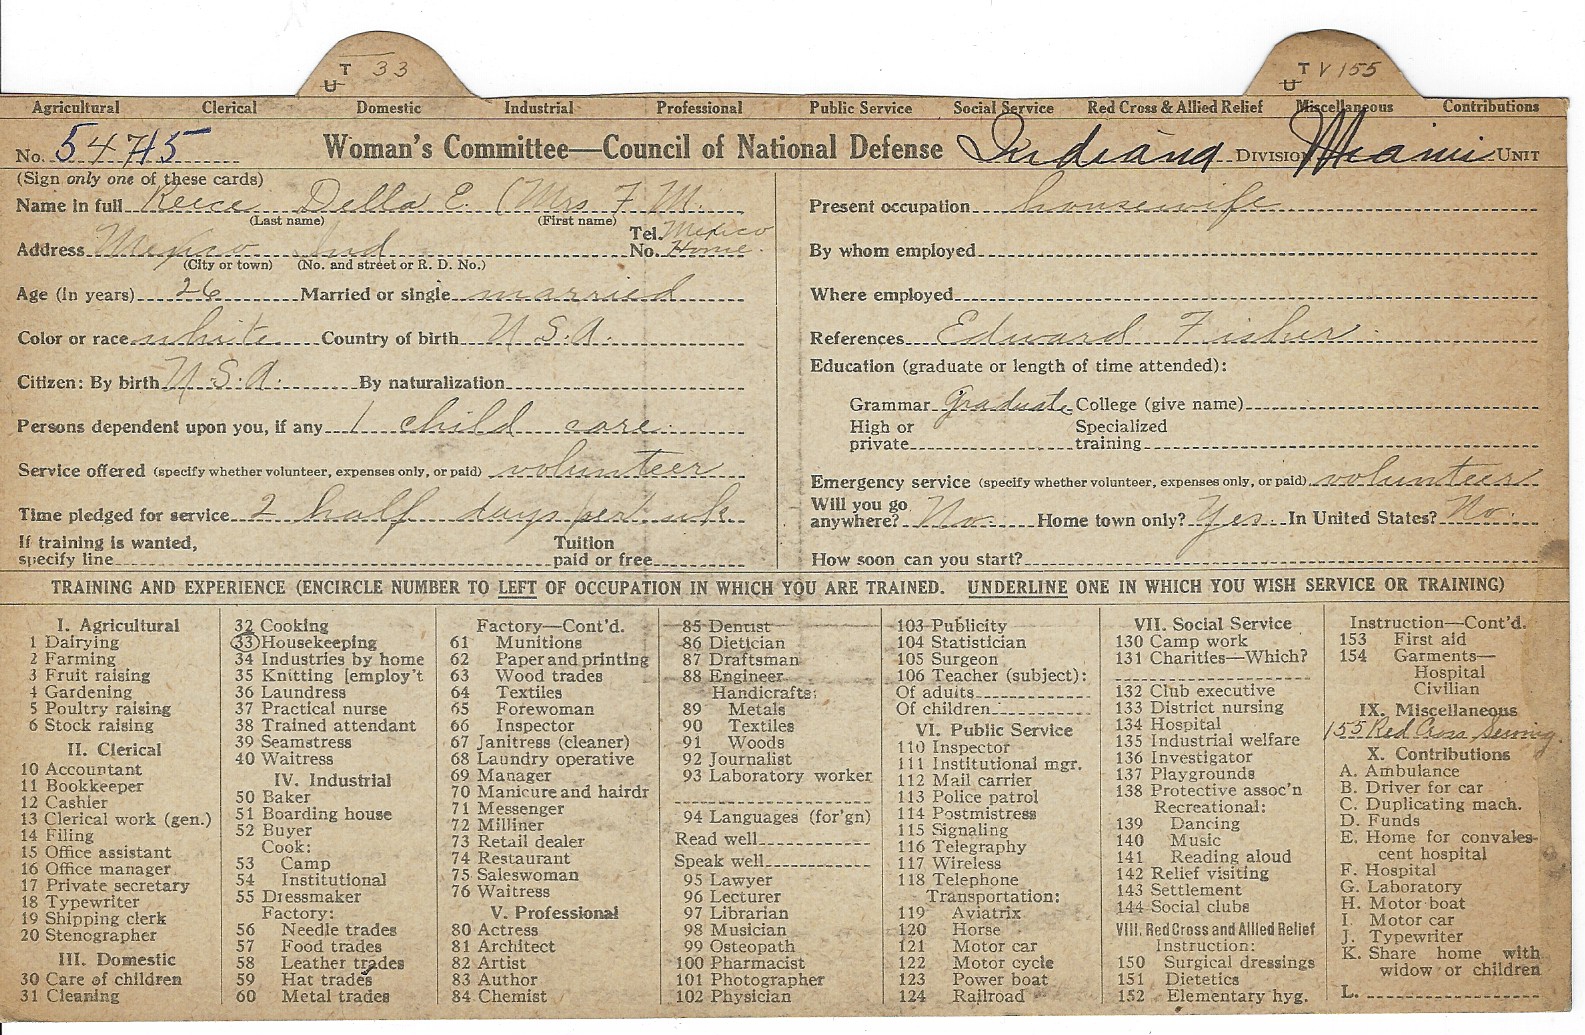 T 33
U
T V 155
U
Agricultural Clerical Domestic Industrial Professional Public Service Social Service Red Cross & Allied Relief Miscellaneous Contributions
No. 5475 Woman's Committee—Council of National Defense Indiana DIVISION Miami UNIT
(Sign only one of these cards)
Name in full Reece Della E. (Mrs F. M.
(Last name) (First name)
Address Mexico Ind Tel. No. Mexico Home.
(City or town) (No. and street or R. D. No.)
Age (in years) 26 Married or single married
Color or race white Country of birth U.S.A.
Citizen: By birth U.S.A. By naturalization
Persons dependent upon you, if any 1 child care.
Service offered (specify whether volunteer, expenses only, or paid) volunteer
Time pledged for service 2 half days per wk
If training is wanted,
specify line
Tuition
paid or free
Present occupation housewife
By whom employed
Where employed
References Edward Fisher.
Education (graduate or length of time attended):
Grammar graduate College (give name)
High or
private
Specialized
training
Emergency service (specify whether volunteer, expenses only, or paid) volunteer
Will you go
anywhere? No. Home town only? Yes. In United States? No.
How soon can you start?
TRAINING AND EXPERIENCE (ENCIRCLE NUMBER TO LEFT OF OCCUPATION IN WHICH YOU ARE TRAINED. UNDERLINE ONE IN WHICH YOU WISH SERVICE OR TRAINING)
I. Agricultural
1 Dairying
2 Farming
3 Fruit raising
4 Gardening
5 Poultry raising
6 Stock raising
II. Clerical
10 Accountant
11 Bookkeeper
12 Cashier
13 Clerical work (gen.)
14 Filing
15 Office assistant
16 Office manager
17 Private secretary
18 Typewriter
19 Shipping clerk
20 Stenographer
III. Domestic
30 Care of children
31 Cleaning
32 Cooking
33 Housekeeping
34 Industries by home
35 Knitting [employ't
36 Laundress
37 Practical nurse
38 Trained attendant
39 Seamstress
40 Waitress
IV. Industrial
50 Baker
51 Boarding house
52 Buyer
Cook:
53 Camp
54 Institutional
55 Dressmaker
Factory:
56 Needle trades
57 Food trades
58 Leather trades
59 Hat trades
60 Metal trades
Factory—Cont'd.
61 Munitions
62 Paper and printing
63 Wood trades
64 Textiles
65 Forewoman
66 Inspector
67 Janitress (cleaner)
68 Laundry operative
69 Manager
70 Manicure and hairdr
71 Messenger
72 Milliner
73 Retail dealer
74 Restaurant
75 Saleswoman
76 Waitress
V. Professional
80 Actress
81 Architect
82 Artist
83 Author
84 Chemist
85 Dentist
86 Dietician
87 Draftsman
88 Engineer
Handicrafts:
89 Metals
90 Textiles
91 Woods
92 Journalist
93 Laboratory worker
94 Languages (for'gn)
Read well
Speak well
95 Lawyer
96 Lecturer
97 Librarian
98 Musician
99 Osteopath
100 Pharmacist
101 Photographer
102 Physician
103 Publicity
104 Statistician
105 Surgeon
106 Teacher (subject):
Of adults
Of children
VI. Public Service
110 Inspector
111 Institutional mgr.
112 Mail carrier
113 Police patrol
114 Postmistress
115 Signaling
116 Telegraphy
117 Wireless
118 Telephone
Transportation:
119 Aviatrix
120 Horse
121 Motor car
122 Motor cycle
123 Power boat
124 Railroad
VII. Social Service
130 Camp work
131 Charities—Which?
132 Club executive
133 District nursing
134 Hospital
135 Industrial welfare
136 Investigator
137 Playgrounds
138 Protective assoc'n
Recreational:
139 Dancing
140 Music
141 Reading aloud
142 Relief visiting
143 Settlement
144 Social clubs
VIII. Red Cross and Allied Relief
Instruction:
150 Surgical dressings
151 Dietetics
152 Elementary hyg.
Instruction—Cont'd.
153 First aid
154 Garments—
Hospital
Civilian
IX. Miscellaneous
155 Red Cross Sewing.
X. Contributions
A. Ambulance
B. Driver for car
C. Duplicating mach.
D. Funds
E. Home for convales-
cent hospital
F. Hospital
G. Laboratory
H. Motor boat
I. Motor car
J. Typewriter
K. Share home with
widow or children
L.